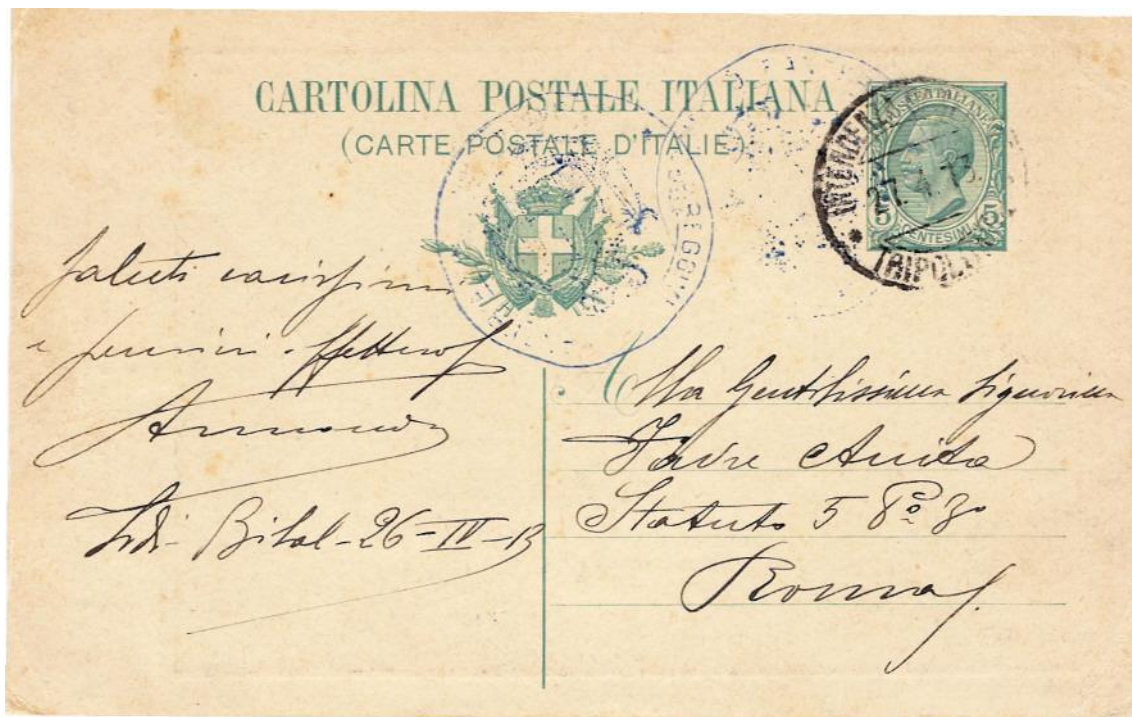 CARTOLINA POSTALE ITALIANA
(CARTE POSTALE D'ITALIE)
POSTE ITALIANE
5 CENTESIMI 5
INTENDENZA
27. 4. 13.
TRIPOLI
Saluti carissimi
e pensieri affettuosi
Armando
Sidi-Bilal-26-IV-13
Alla Gentilissima Signorina
Anita
Statuto 5 Pº 3º
Roma